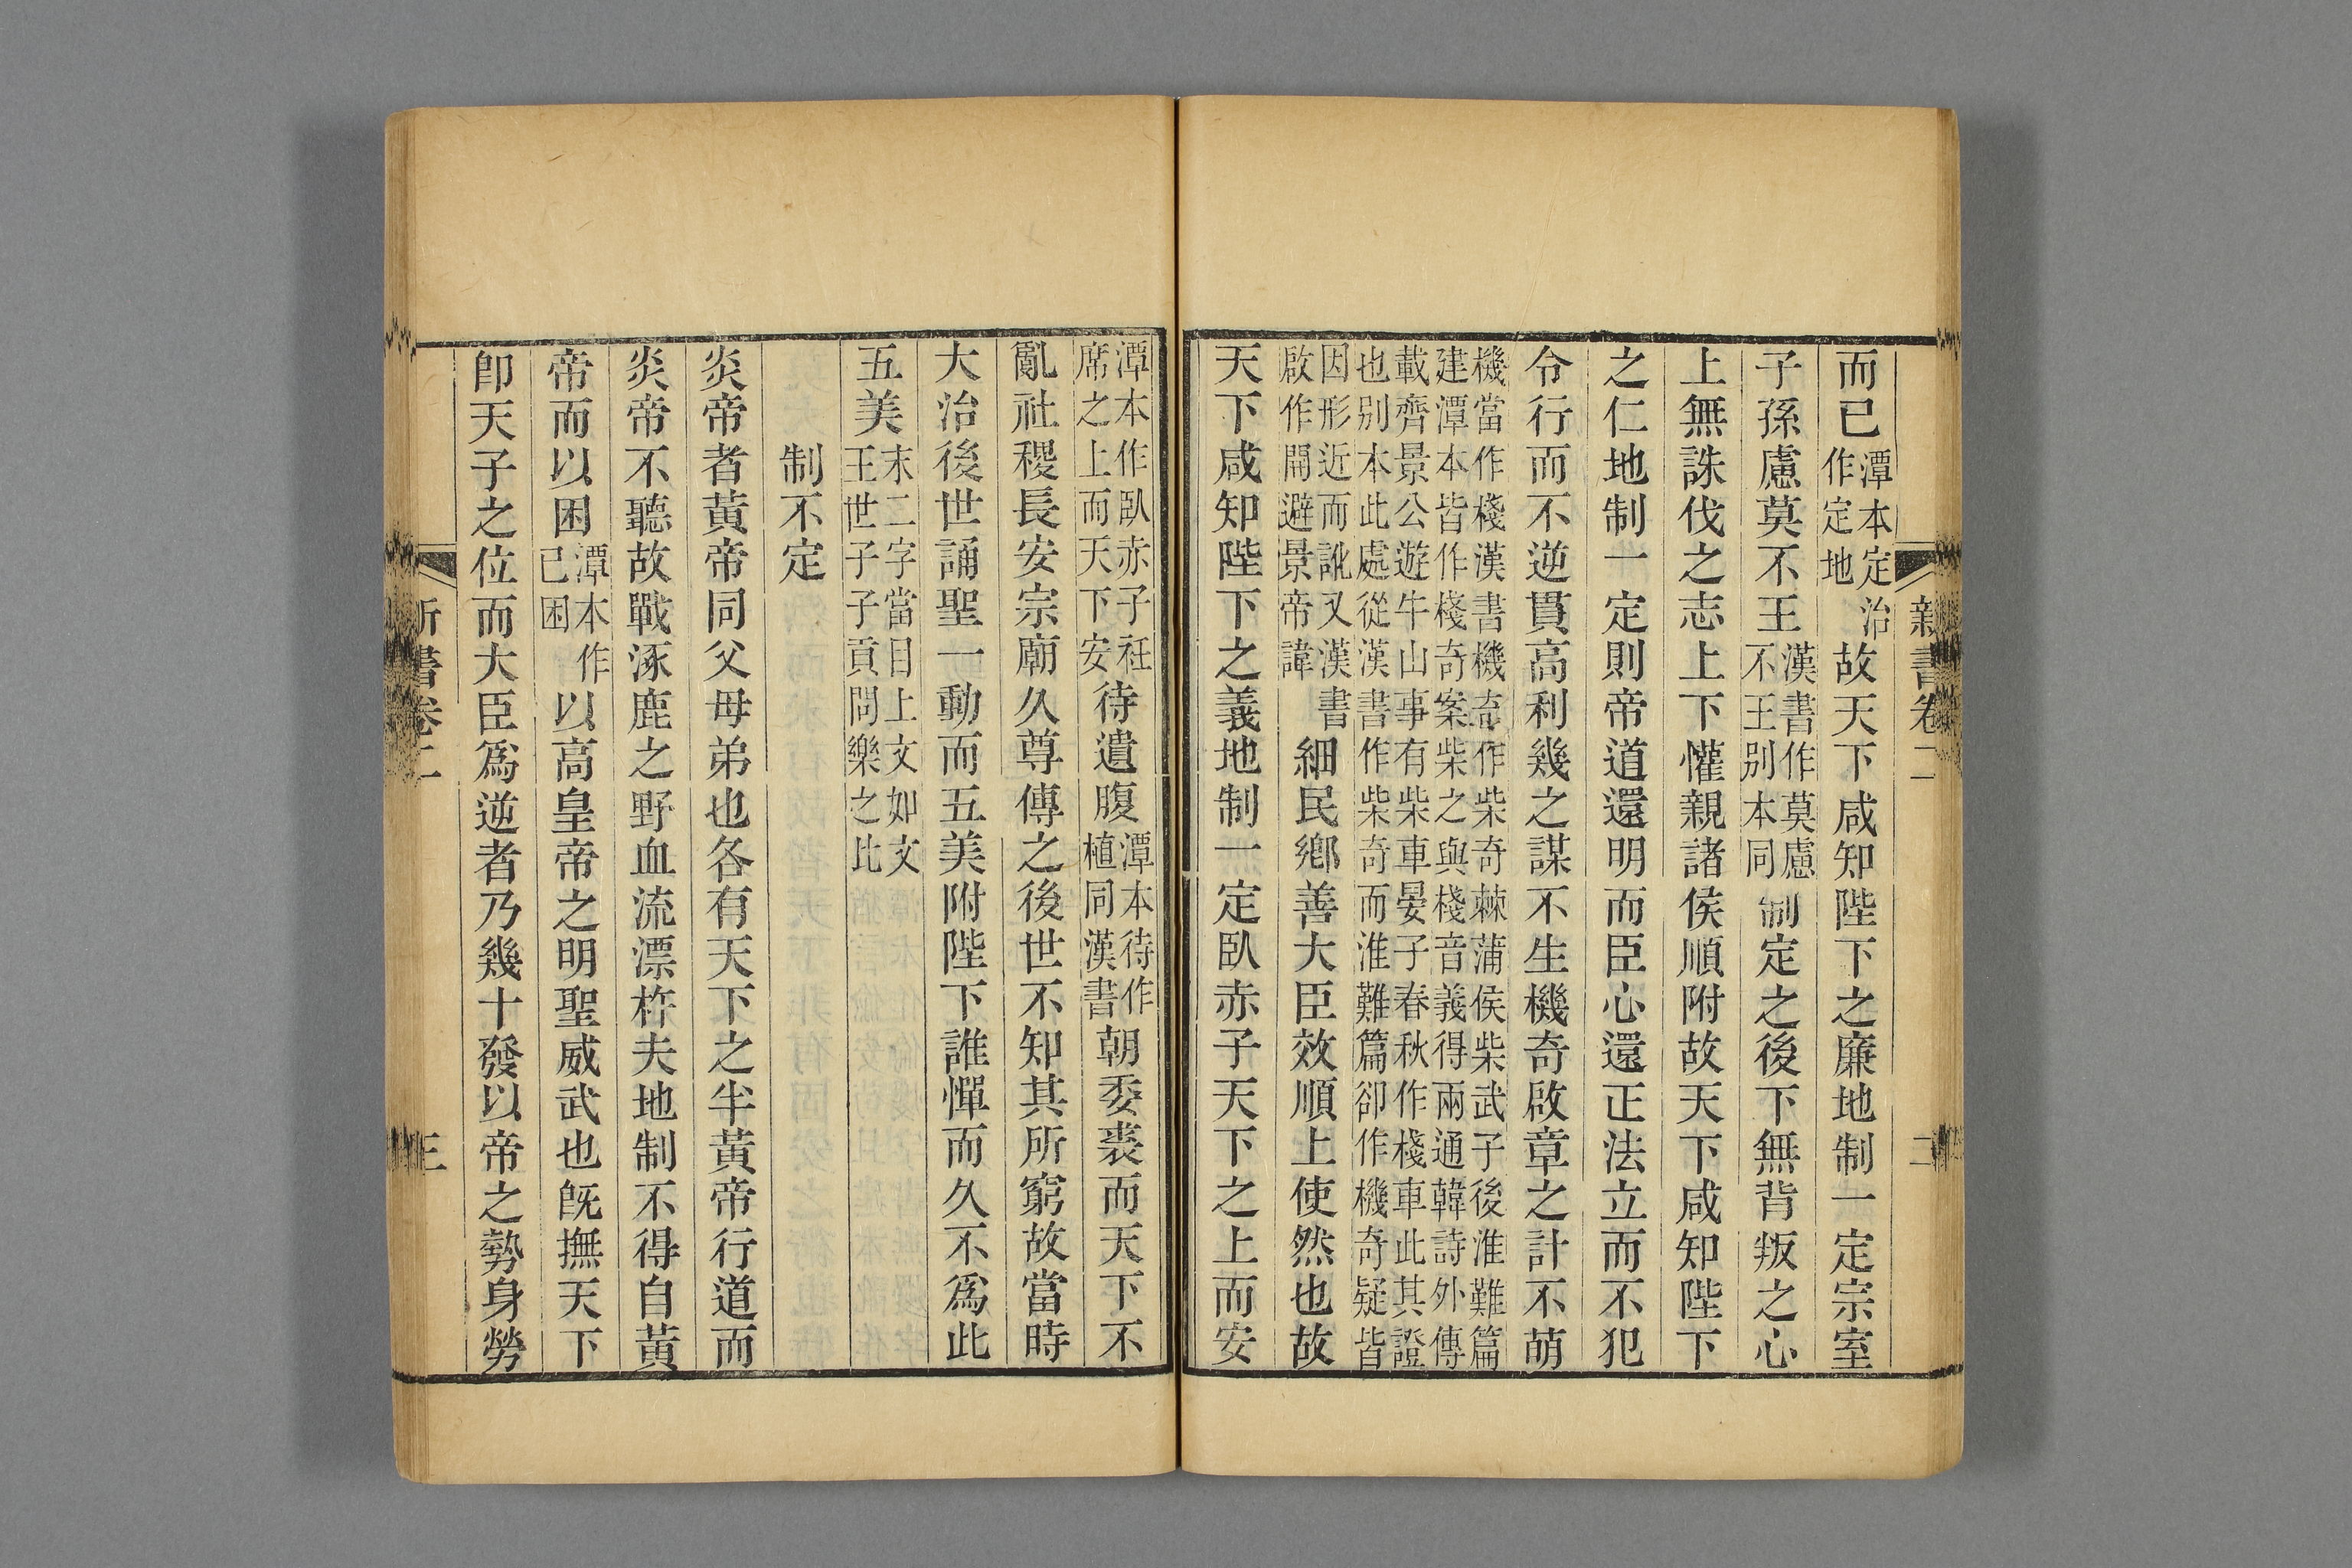 新書卷二 二
而已潭本定治作定地故天下咸知陛下之廉地制一定宗室
子孫慮莫不王漢書作莫慮不王別本同制定之後下無背叛之心
上無誅伐之志上下懽親諸侯順附故天下咸知陛下
之仁地制一定則帝道還明而臣心還正法立而不犯
令行而不逆貫高利幾之謀不生機奇啟章之計不萌
機當作棧漢書機奇作柴奇棘蒲侯柴武子後淮難篇
建潭本皆作棧奇案柴之與棧音義得兩通韓詩外傳
載齊景公遊牛山事有柴車晏子春秋作棧車此其證
也別本此處從漢書作柴奇而淮難篇卻作機奇疑皆
因形近而訛又漢書啟作開避景帝諱細民鄉善大臣效順上使然也故
天下咸知陛下之義地制一定臥赤子天下之上而安
潭本作臥赤子衽席之上而天下安待遺腹潭本待作植同漢書朝委裘而天下不
亂社稷長安宗廟久尊傳之後世不知其所窮故當時
大治後世誦聖一動而五美附陛下誰憚而久不爲此
五美末二字當目上文如文王世子子貢問樂之比
制不定
炎帝者黃帝同父母弟也各有天下之半黃帝行道而
炎帝不聽故戰涿鹿之野血流漂杵夫地制不得自黃
帝而以困潭本作已困以高皇帝之明聖威武也旣撫天下
卽天子之位而大臣爲逆者乃幾十發以帝之勢身勞
新書卷二 三